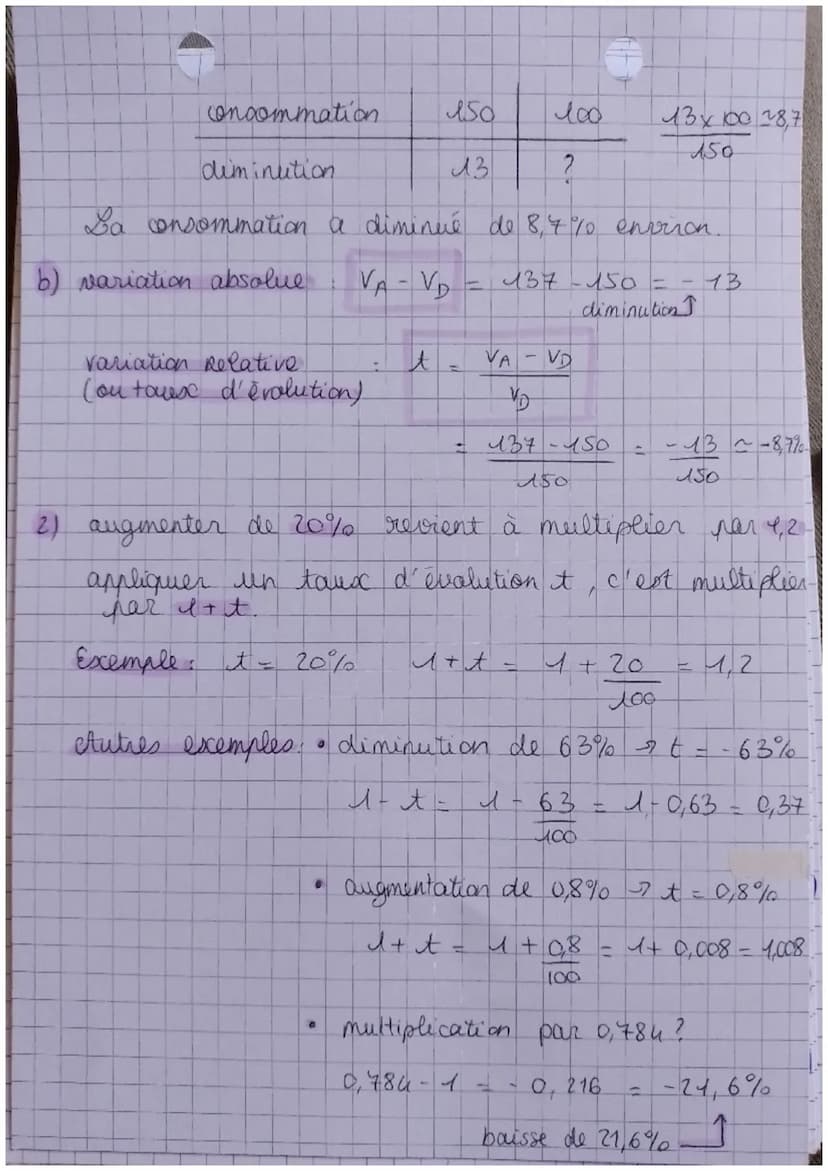 consommation 150 100 13 x 100 ≃ 8,7
150
diminution 13 ?
La consommation a diminué de 8,7% environ.
b) variation absolue : VA - VD = 137 - 150 = - 13
diminution ↑
variation relative : t = VA - VD
(ou taux d'évolution) VD
= 137 - 150 = - 13 ≃ -8,7%
150 150
2) augmenter de 20% revient à multiplier par 1,2
appliquer un taux d'évolution t, c'est multiplier
par 1 + t.
Exemple : t = 20% 1 + t = 1 + 20 = 1,2
100
Autres exemples : • diminution de 63% → t = - 63%
1 - t = 1 - 63 = 1 - 0,63 = 0,37
100
• augmentation de 0,8% → t = 0,8%
1 + t = 1 + 0,8 = 1 + 0,008 = 1,008
100
• multiplication par 0,784 ?
0,784 - 1 = - 0,216 = -21,6%
baisse de 21,6% ↑